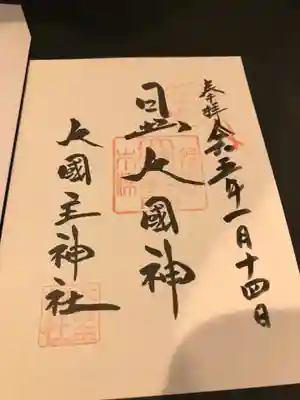 奉拝
令和五年一月十四日
日出大國神
大國主神社